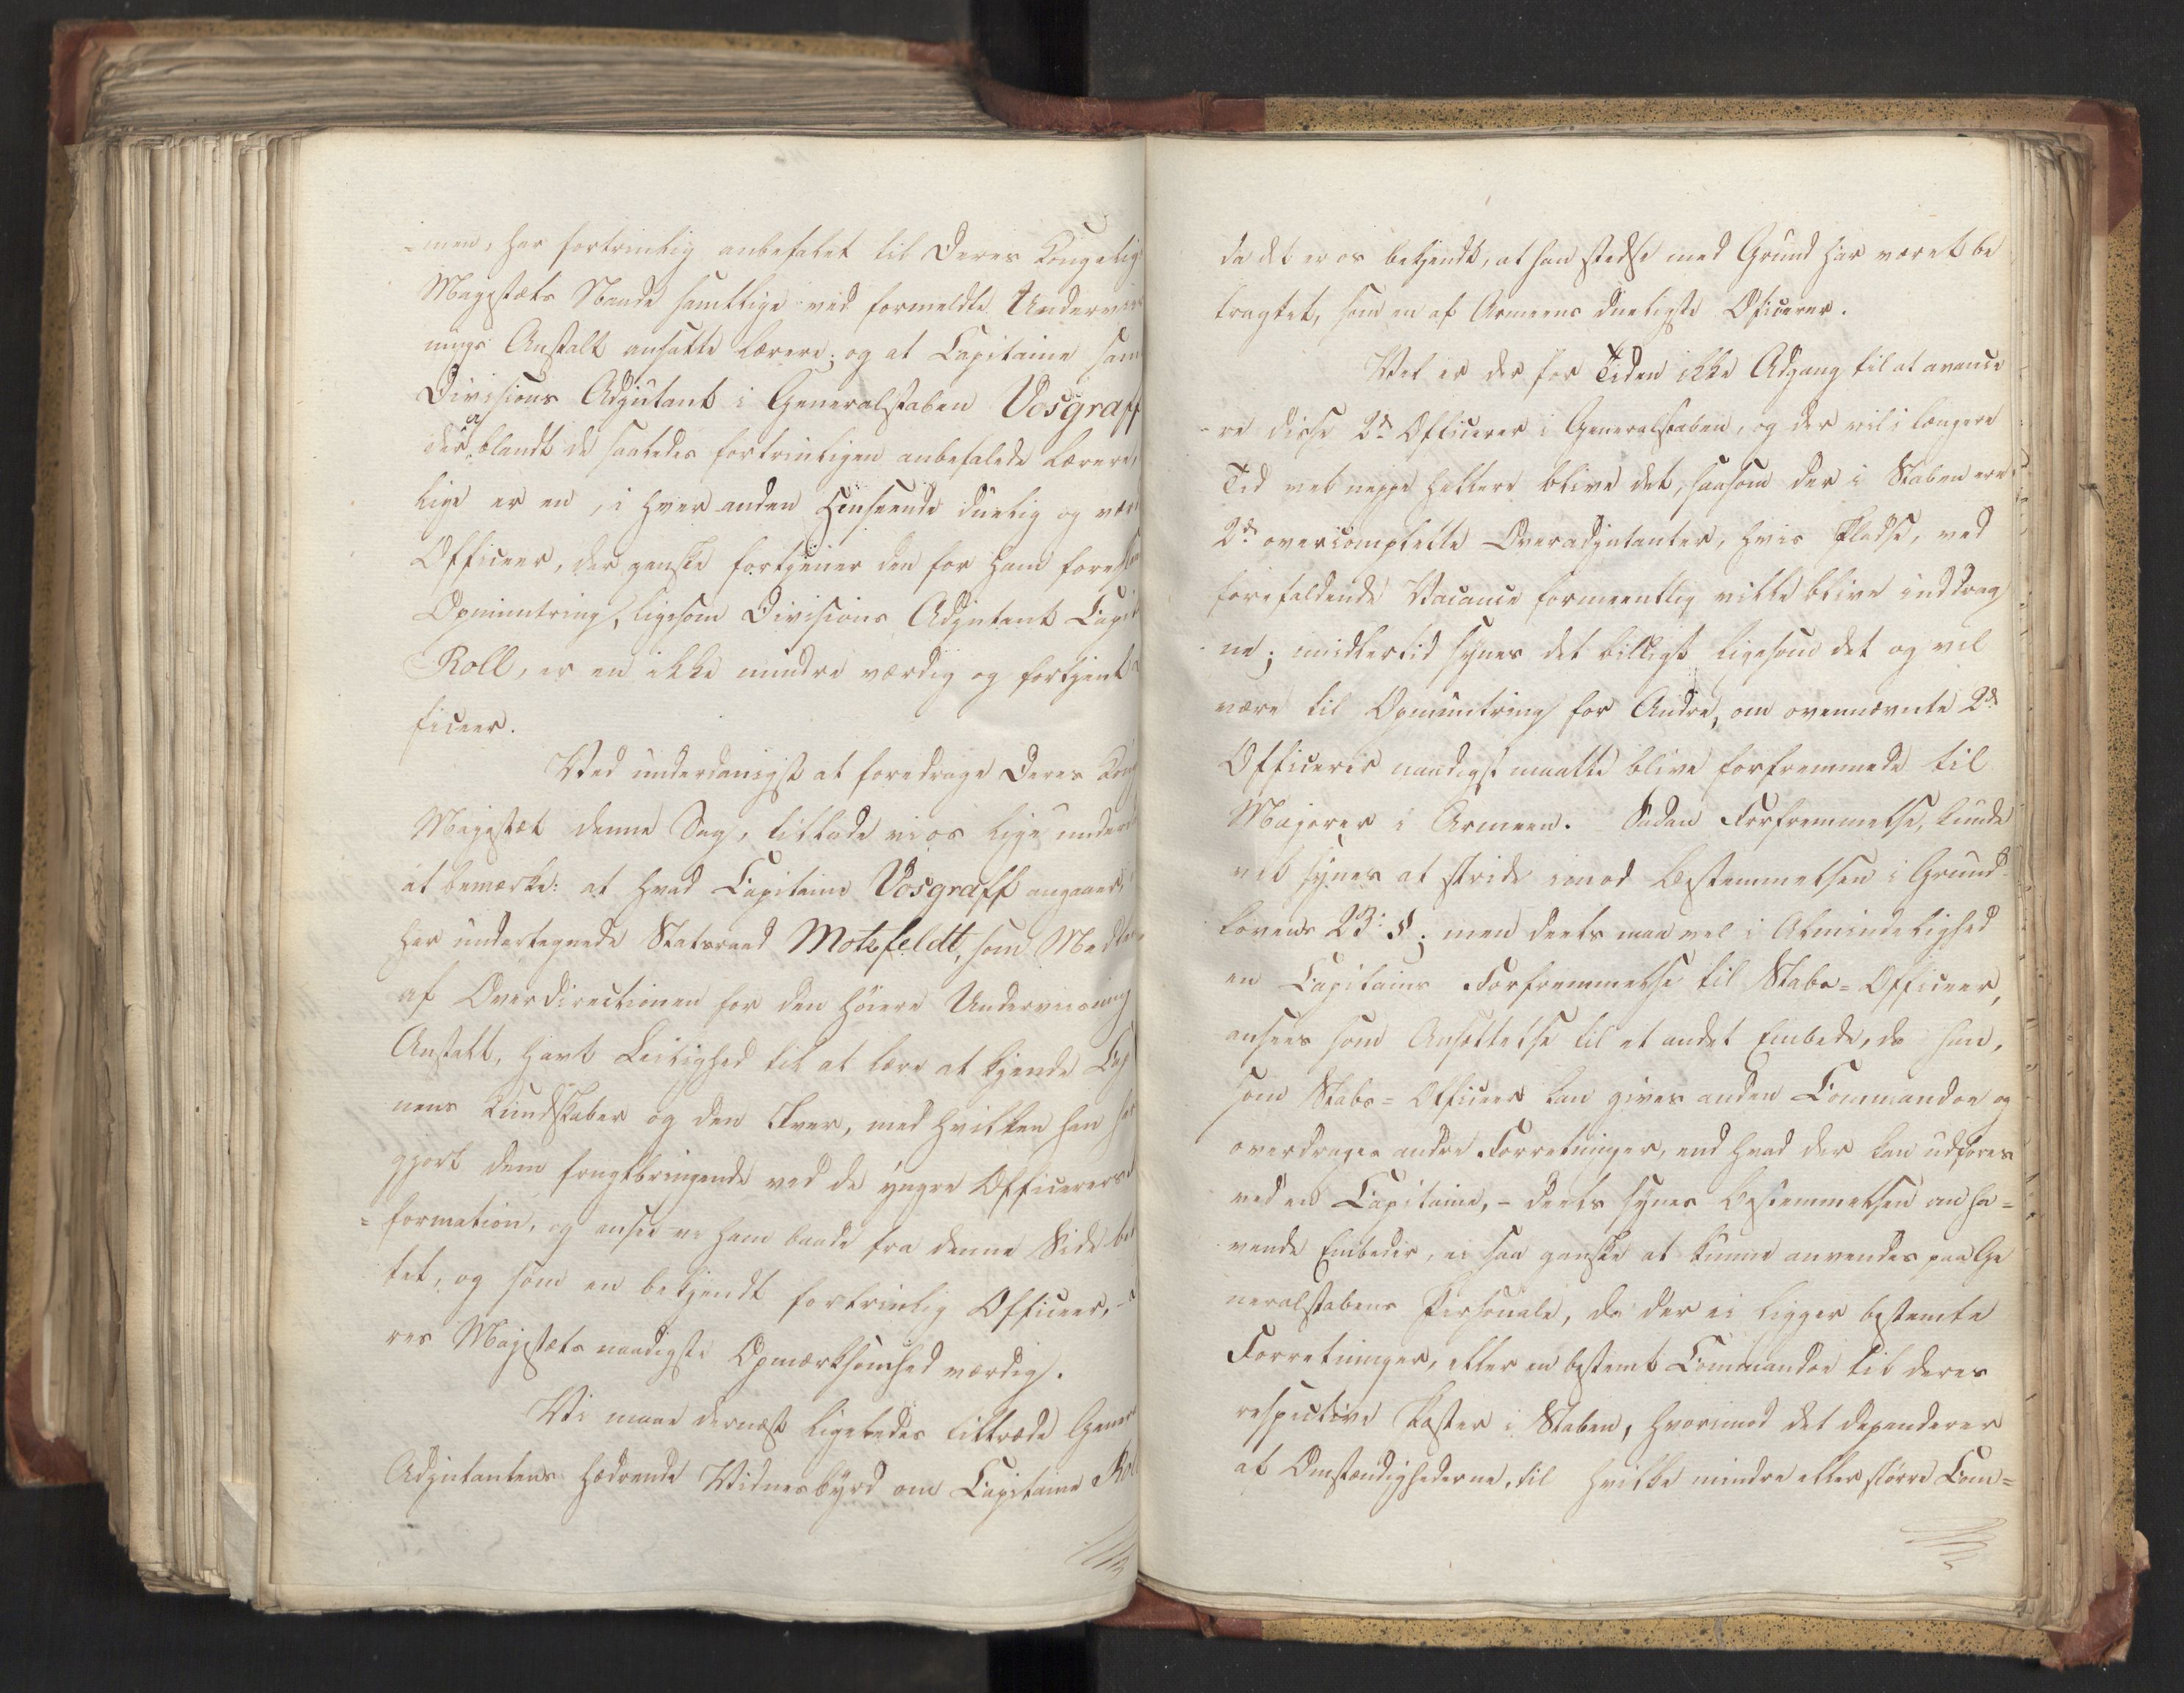 =men, har fortrinlig anbefalet til Deres Kongelig
Majestæts Naade samtlige ved formeldte Underviis
nings Anstalt ansatte Lærere; og at Capitaine sam
Divisions Adjutant i Generalstaben Vosgraff
der blandt de saaledes fortrinligen anbefalede Lærere,
lige er en, i hver anden Henseende duelig og vær
Officeer, der ganske fortjener den for ham foresl
Opmuntring, ligesom Divisions Adjutant Capit
Roll, er en ikke mindre værdig og fortjent
ficeer.
Ved underdanigst at foredrage Deres Kong
Majestæt denne Sag, tillade vi os lige under
at bemærke: at hvad Capitaine Vosgraff angaaer,
har undertegnede Statsraad Motzfeldt, som Medl
af Overdirectionen for den høiere Underviisning
Anstalt, havt Leilighed til at lære at kjende Cap
nens Kundskaber og den Iver, med hvilken han har
gjort dem frugtbringende ved de yngre Officerers
=formation, og ansee vi ham baade fra denne Side be
tet, og som en bekjendt fortrinlig Officeer,
res Majestæts naadigste Opmærksomhed værdig.
Vi maae dernæst ligeledes tiltræde Gener
Adjutantens hædrende Vidnesbyrd om Capitaine Roll
da det er os bekjendt, at han stedse med Grund har været be
tragtet, som en af Armeens dueligste Officerer.
Vel er der for Tiden ikke Adgang til at avance
=re disse 2de Officerer i Generalstaben, og der vil i længere
Tid vel neppe hellere blive det, saasom der i Staben ere
2de overcomplette Overadjutanter, hvis Pladse, ved
forefaldende Vacance formeentlig ville blive inddrag
ne; imidlertid synes det billigt ligesom det og vil
være til Opmuntring for Andre, om ovennævnte 2de
Officerer naadigst maatte blive forfremmede til
Majorer i Armeen. Sadan Forfremmelse, kunde
vel synes at stride imod Bestemmelsen i Grund-
lovens 23: §; men deels maa vel i Almindelighed
en Capitains Forfremmelse til Stabs=Officeer,
ansees som Ansættelse til et andet Embede, da han,
som Stabs=Officeer kan gives anden Commandoe og
overdrages andre Forretninger, end hvad der kan udføres
ved en Capitaine, - deels synes Bestemmelsen om ha=
vende Embeder, ei saa ganske at kunne anvendes paa Ge
neralstabens Personale, da der ei ligger bestemte
Forretninger, eller en bestemt Commandoe til deres
respective Poster i Staben, hvorimod det dependerer
af Omstændighederne, til hvilke mindre eller større Com=